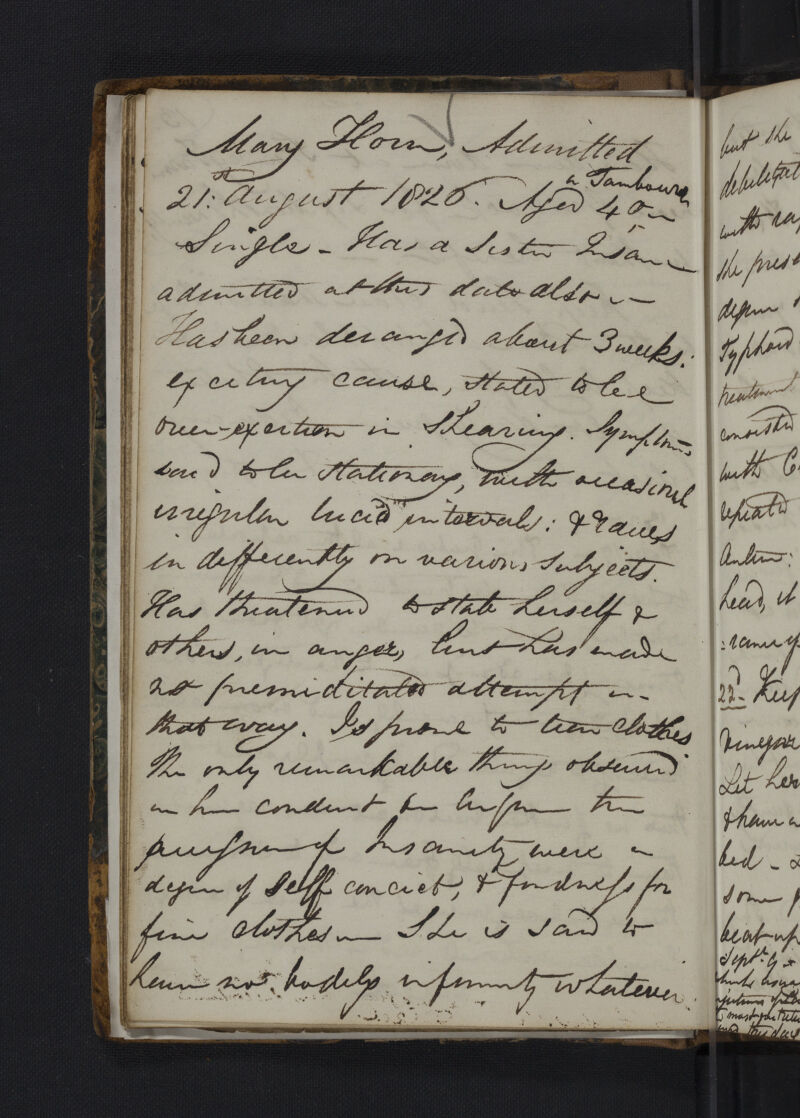 Mary Horn, Admitted
21st August 1826. Aged 40 a Tambourer
Single - Has a Sister Insane
admitted at this date also -
Has been deranged about 3 weeks:
exciting cause, stated to be
over-exertion in Shearing. Symptoms
said to be stationary, with occasional
irregular lucid intervals: & raves
indifferently on various subjects.
Has threatened to stab herself &
others, in anger, but has made
no premeditated attempt in
that way. Is prone to tear clothes
The only remarkable thing observed
in her conduct before the
Insanity were a
degree of self conciet, & fondness for
fine clothes - She is said to
have no bodily infirmity whatever
but she
debilitat
with ra
she prese
degree
Typhoid
treatment
consisted
with C
repeated
Antim:
head, it
22d Keep
Vinegar
Let her
& have a
bed -
some
beat up
Septr. 9